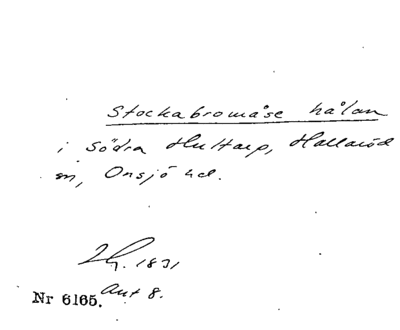 Stockabromåse hålan
i Södra Hultarp, Hallaröd
sn, Onsjö hd.
1831
Nr 6165. Ant 8.